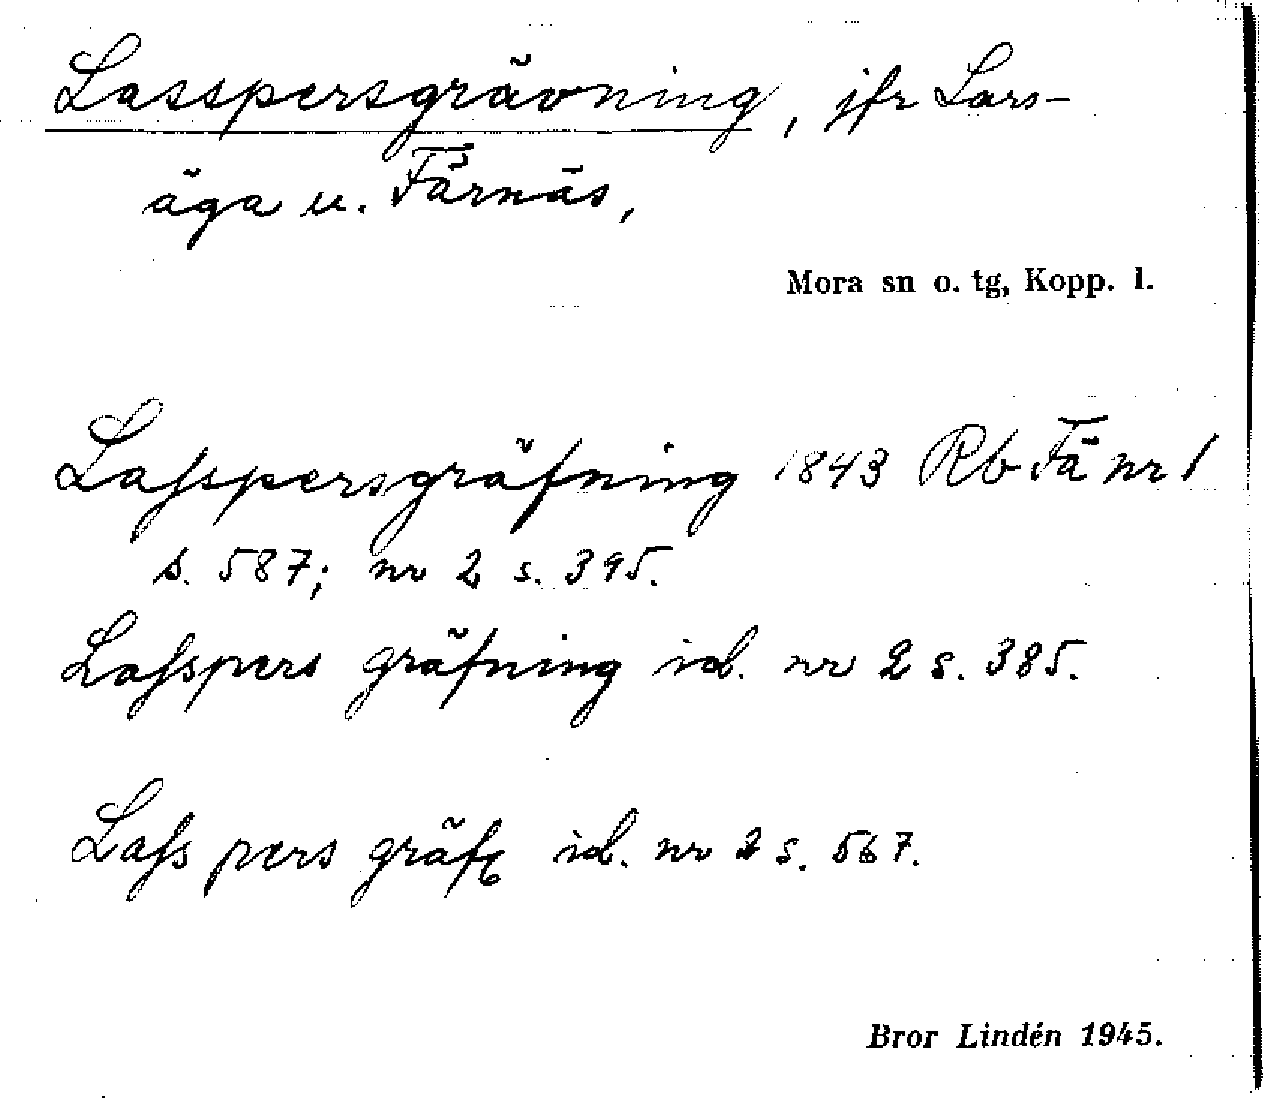 Lasspersgrävning, jfr Lars-
äga u. Färnäs,
Mora sn o. tg, Kopp. l.
Laſspersgräfning 1843 Rb Fä nr 1
s. 587; nr 2 s. 395.
Laſspers gräfning id. nr 2 s. 385.
Laſs pers gräf id. nr 2 s. 567.
Bror Lindén 1945.